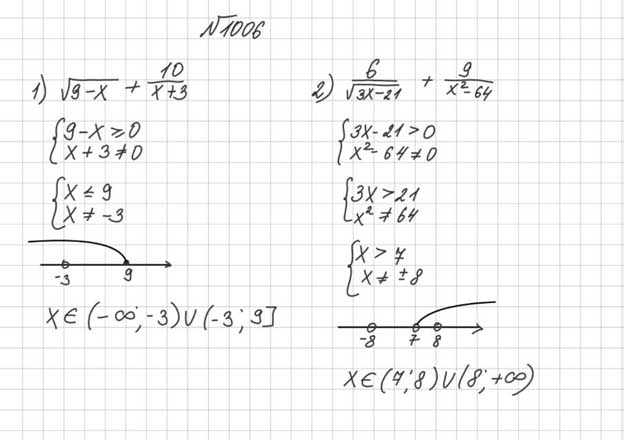 №1006
1) √(9-x) + 10/(x+3)
{9-x ≥ 0
x+3 ≠ 0
{x ≤ 9
x ≠ -3
-3 9
x ∈ (-∞; -3) ∪ (-3; 9]
2) 6/√(3x-21) + 9/(x²-64)
{3x-21 > 0
x²-64 ≠ 0
{3x > 21
x² ≠ 64
{x > 7
x ≠ ±8
-8 7 8
x ∈ (7; 8) ∪ (8; +∞)